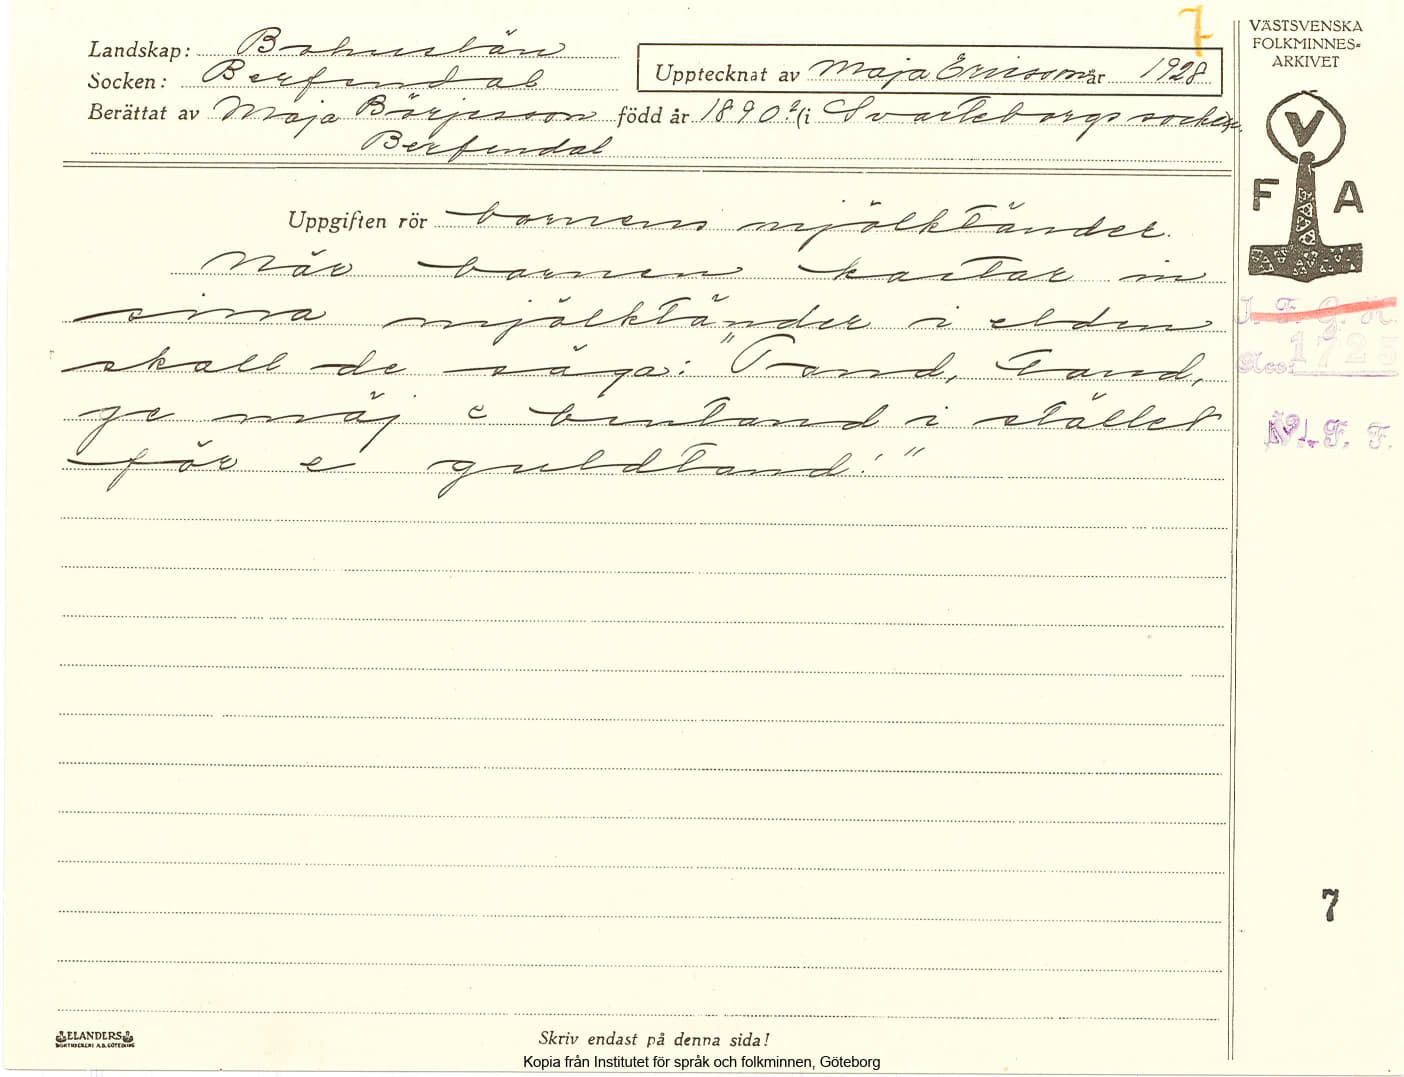 7
VÄSTSVENSKA
FOLKMINNES=
ARKIVET
Landskap: Bohuslän
Socken: Berfendal
Upptecknat av Maja Ericsson år 1928
Berättat av Maja Börjesson född år 1890? (i Svarteborgs socken.
Berfendal
V
F A
Uppgiften rör barnens mjölktänder.
När barnen kastar in
sina mjölktänder i elden
skall de säga: "Tand, tand,
ge mäj e bentand i stället
för e guldtand!"
I. F. G. H.
Acc: 1725
V. F. F.
7
ELANDERS
BOKTRYCKERI A.B. GÖTEBORG
Skriv endast på denna sida!
Kopia från Institutet för språk och folkminnen, Göteborg